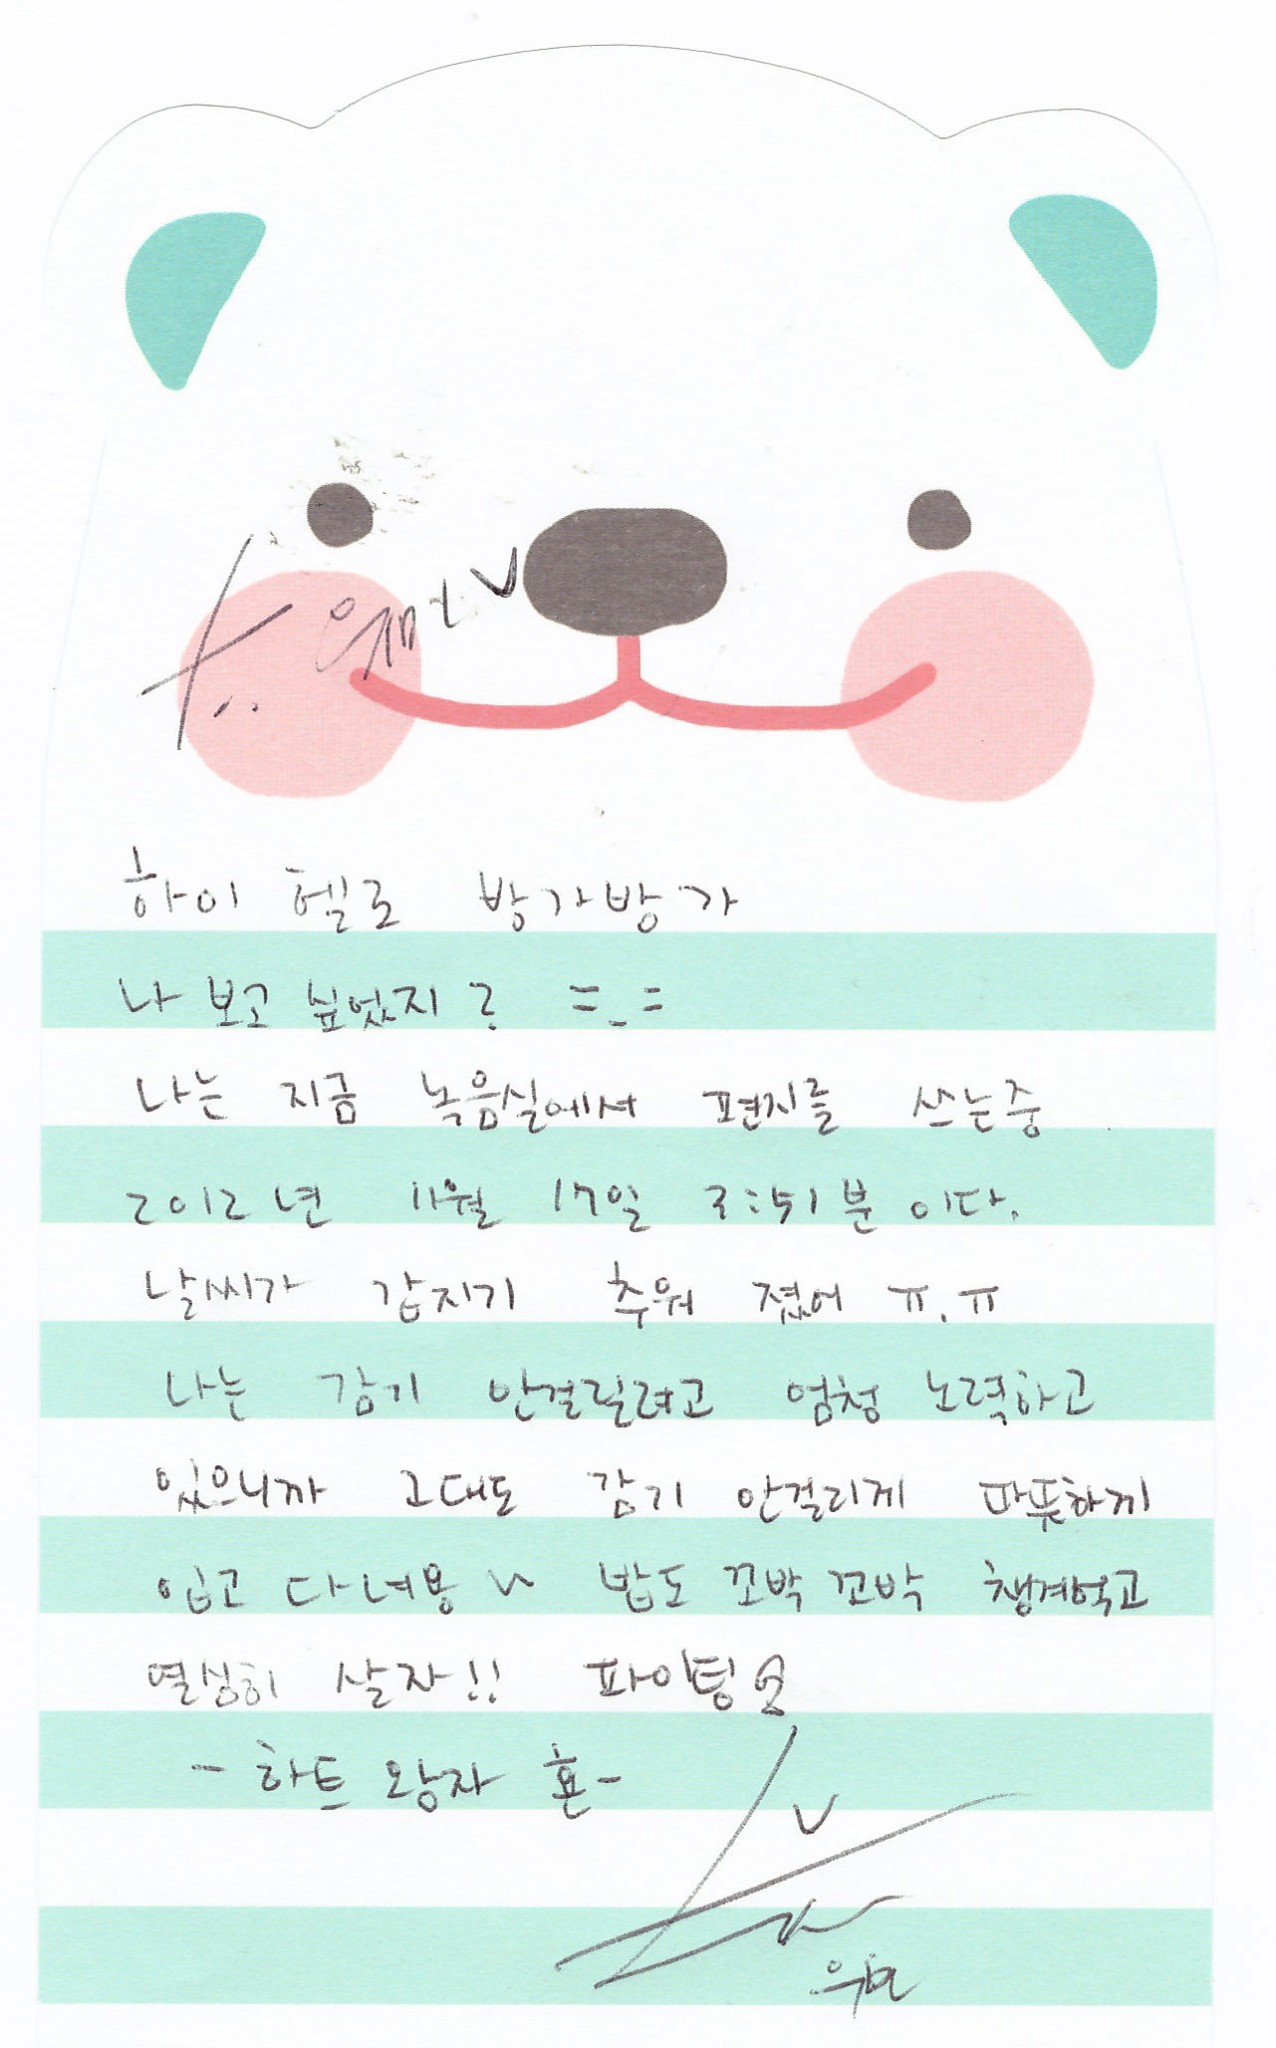 하이 헬로 방가방가
나 보고 싶었지? =_=
나는 지금 녹음실에서 편지를 쓰는중
2012년 11월 17일 3:51분이다.
날씨가 갑자기 추워 졌어 ㅠ.ㅠ
나는 감기 안걸릴려고 엄청 노력하고
있으니까 그대도 감기 안걸리게 따뜻하게
입고 다녀용 ~ 밥도 꼬박 꼬박 챙겨먹고
열심히 살자!! 파이팅
- 하트 왕자 훈-